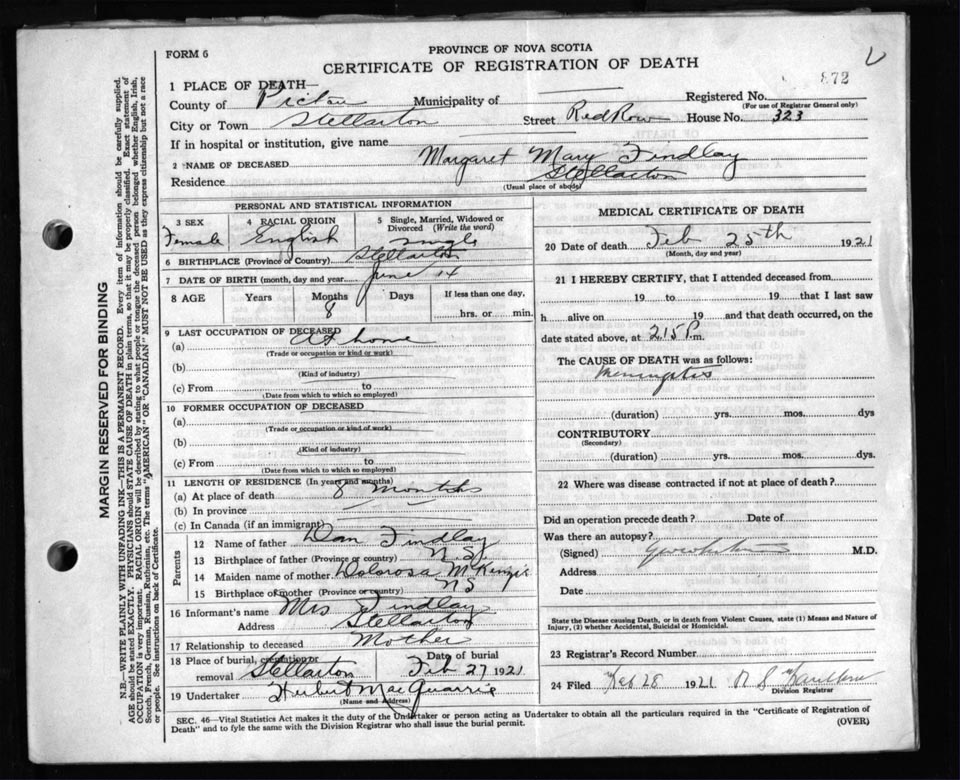 FORM 6
PROVINCE OF NOVA SCOTIA
CERTIFICATE OF REGISTRATION OF DEATH
872
1 PLACE OF DEATH—
County of Pictou Municipality of
Registered No.
(For use of Registrar General only)
City or Town Stellarton Street Red Row House No. 323
If in hospital or institution, give name
2 NAME OF DECEASED Margaret Mary Findlay
Residence Stellarton
(Usual place of abode)
PERSONAL AND STATISTICAL INFORMATION
3 SEX Female
4 RACIAL ORIGIN English
5 Single, Married, Widowed or Divorced (Write the word) Single
6 BIRTHPLACE (Province or Country) Stellarton
7 DATE OF BIRTH (month, day and year) June 14
8 AGE Years Months Days If less than one day,
8 hrs. or min.
9 LAST OCCUPATION OF DECEASED
(a) At home
(Trade or occupation or kind of work)
(b)
(Kind of industry)
(c) From to
(Date from which to which so employed)
10 FORMER OCCUPATION OF DECEASED
(a)
(Trade or occupation or kind of work)
(b)
(Kind of industry)
(c) From to
(Date from which to which so employed)
11 LENGTH OF RESIDENCE (In years and months)
(a) At place of death 8 months
(b) In province
(c) In Canada (if an immigrant)
Parents
12 Name of father Dan Findlay
13 Birthplace of father (Province or country) N.S.
14 Maiden name of mother Dolorosa McKenzie
15 Birthplace of mother (Province or country) NS
16 Informant's name Mrs Findlay
Address Stellarton
17 Relationship to deceased Mother
18 Place of burial, cremation or removal Stellarton Date of burial Feb 27 1921
19 Undertaker Herbert MacQuarrie
(Name and Address)
MEDICAL CERTIFICATE OF DEATH
20 Date of death Feb 25th 1921
(Month, day and year)
21 I HEREBY CERTIFY, that I attended deceased from
19 to 19 that I last saw
h alive on 19 and that death occurred, on
date stated above, at 2.15 P.m.
The CAUSE OF DEATH was as follows:
Meningitis
(duration) yrs. mos. dys
CONTRIBUTORY
(Secondary)
(duration) yrs. mos. dys.
22 Where was disease contracted if not at place of death?
Did an operation precede death? Date of
Was there an autopsy?
(Signed) M.D.
Address
Date
State the Disease causing Death, or in death from Violent Causes, state (1) Means and Nature of
Injury, (2) whether Accidental, Suicidal or Homicidal.
23 Registrar's Record Number
24 Filed Feb 28 1921
Division Registrar
SEC. 46—Vital Statistics Act makes it the duty of the Undertaker or person acting as Undertaker to obtain all the particulars required in the "Certificate of Registration of
Death" and to fyle the same with the Division Registrar who shall issue the burial permit.
(OVER)
MARGIN RESERVED FOR BINDING
N.B.—WRITE PLAINLY WITH UNFADING INK—THIS IS A PERMANENT RECORD. Every item of information should be carefully supplied.
AGE should be stated EXACTLY. PHYSICIANS should STATE CAUSE OF DEATH in plain terms, so that it may be properly classified. Exact statement of
OCCUPATION is very important. RACIAL ORIGIN will be described by stating to what people or tongue the deceased person belonged whether English, Irish,
Scotch, French, German, Russian, Ruthenian, etc. The terms "AMERICAN" OR "CANADIAN" MUST NOT BE USED as they express citizenship but not a race
or people. See instructions on back of Certificate.